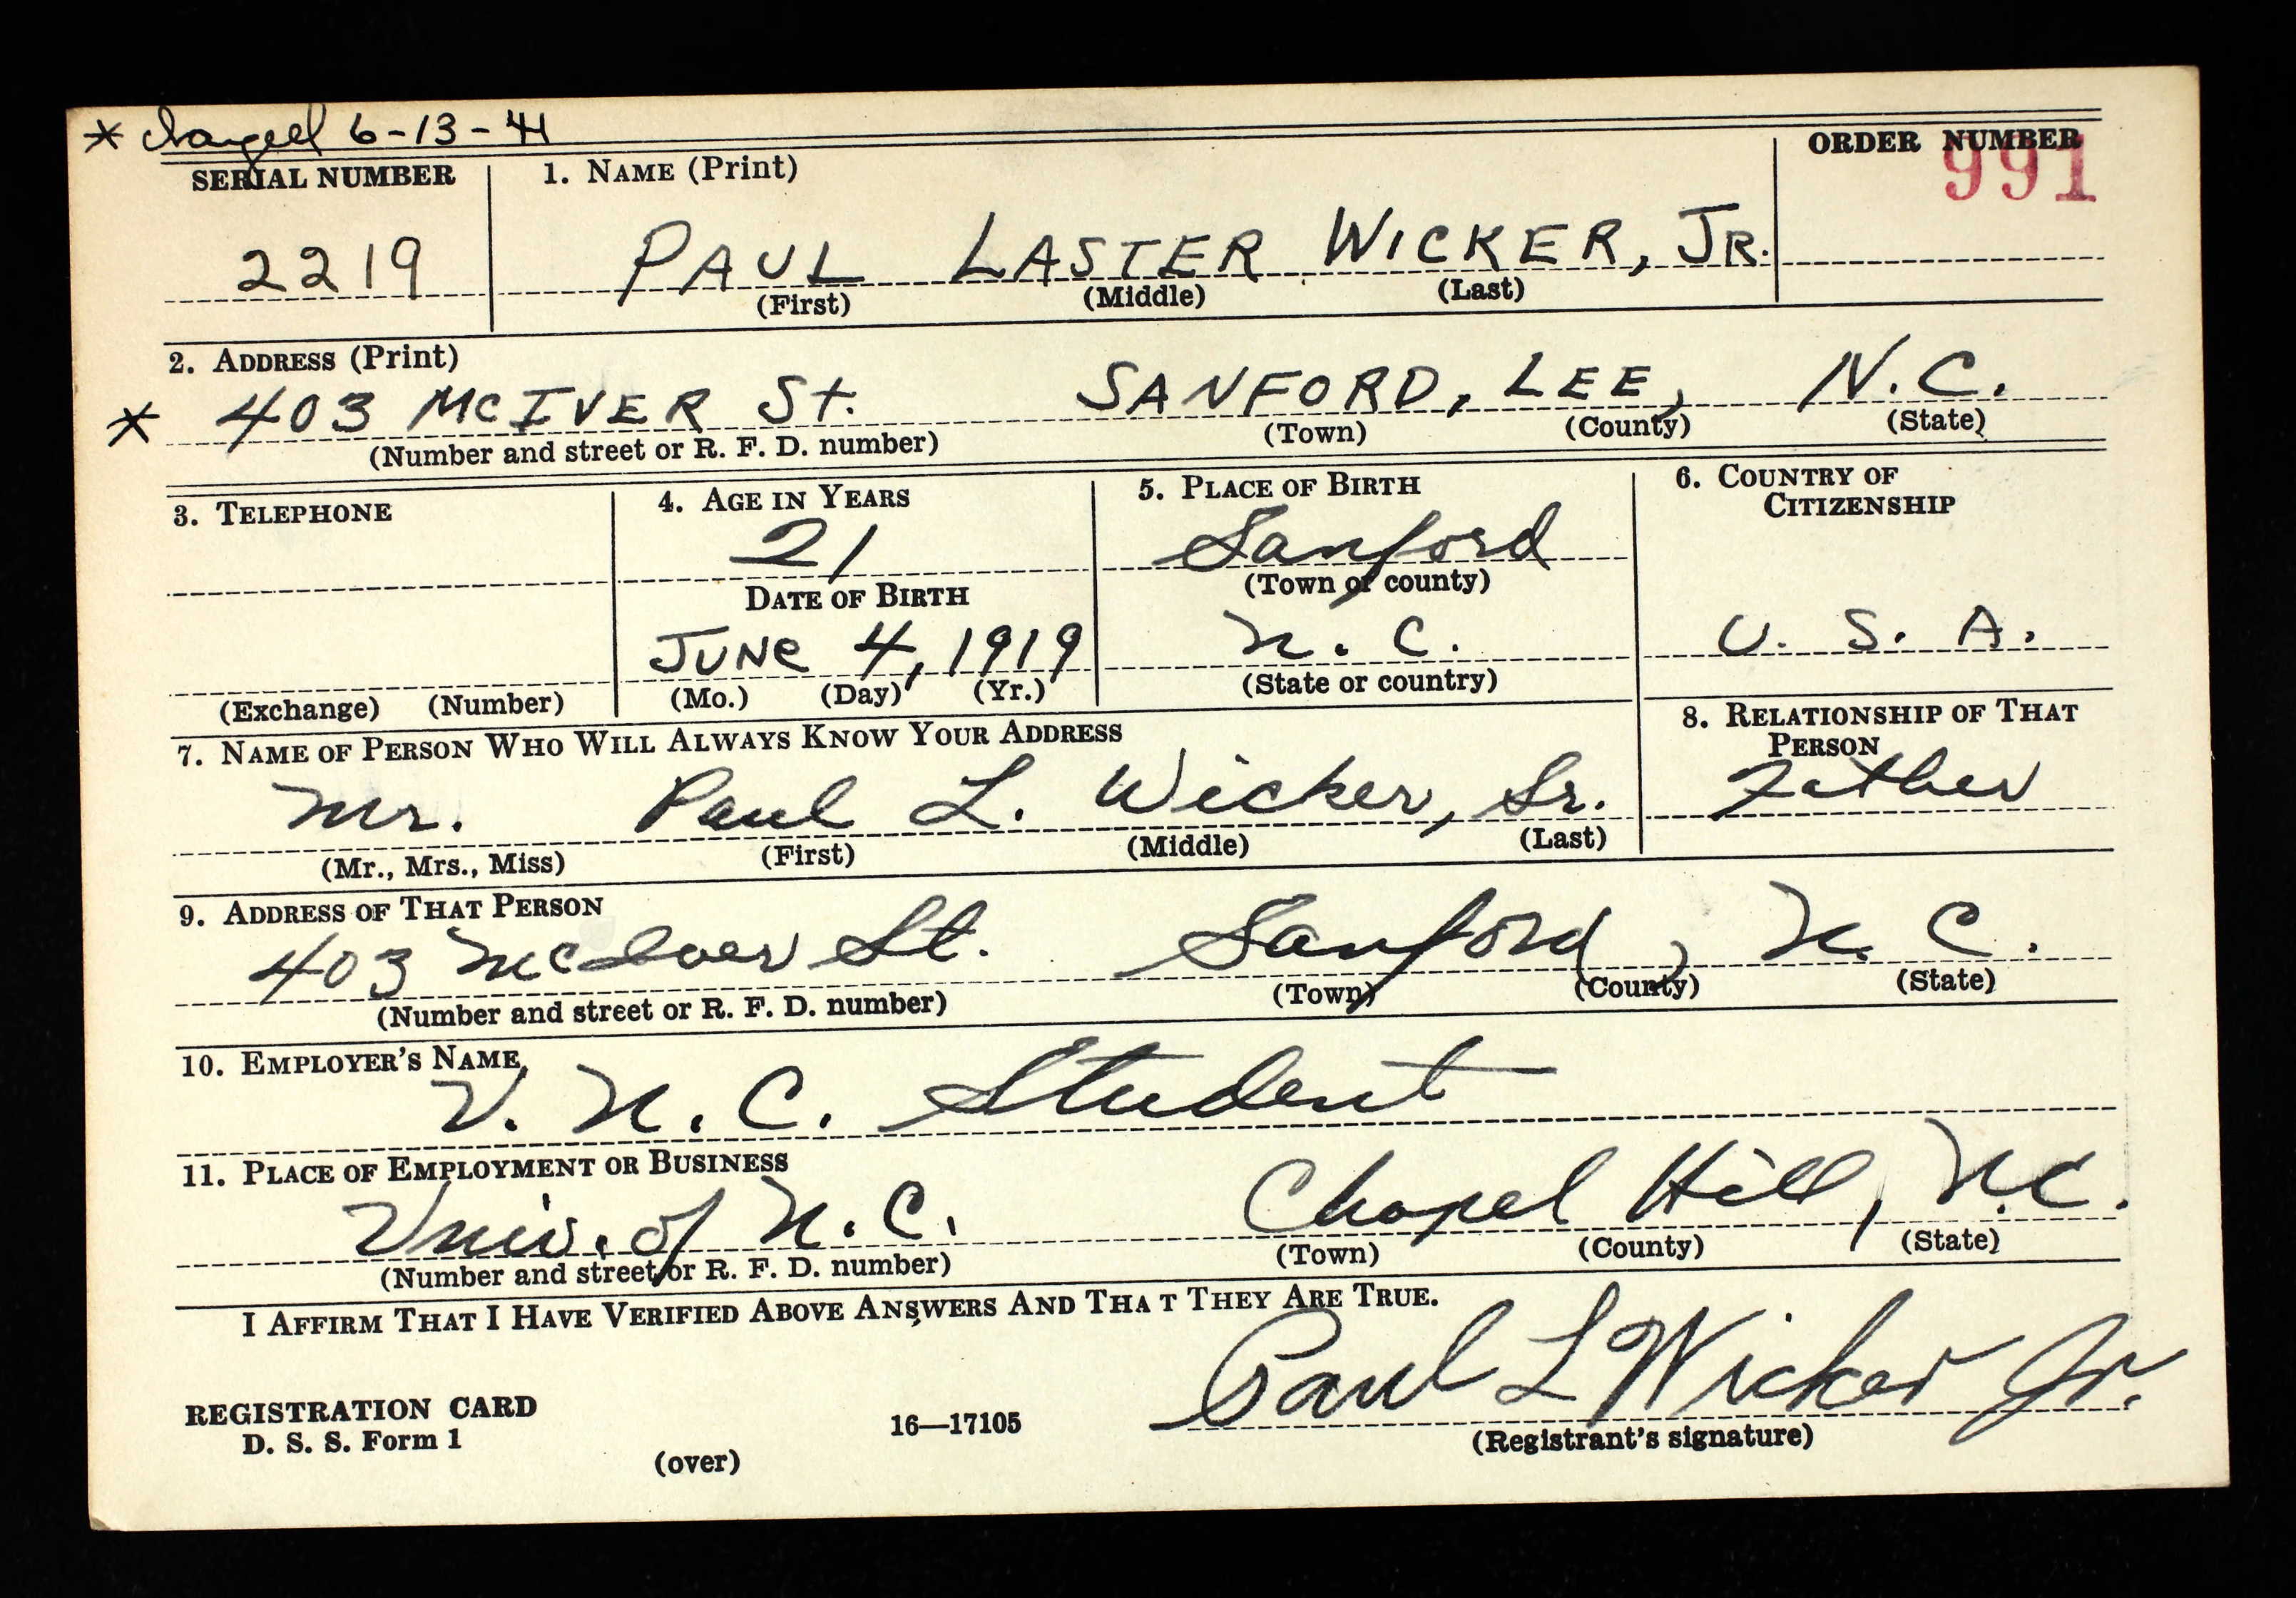 * Changed 6-13-41
SERIAL NUMBER 1. NAME (Print) ORDER NUMBER
991
2219 PAUL LASTER WICKER, JR.
(First) (Middle) (Last)
2. ADDRESS (Print)
* 403 MCIVER St. SANFORD, LEE, N.C.
(Number and street or R. F. D. number) (Town) (County) (State)
3. TELEPHONE 4. AGE IN YEARS 5. PLACE OF BIRTH 6. COUNTRY OF
CITIZENSHIP
21 Sanford
DATE OF BIRTH (Town or county)
JUNe 4, 1919 N. C. U. S. A.
(Exchange) (Number) (Mo.) (Day) (Yr.) (State or country)
7. NAME OF PERSON WHO WILL ALWAYS KNOW YOUR ADDRESS 8. RELATIONSHIP OF THAT
PERSON
Mr. Paul L. Wicker, Sr. Father
(Mr., Mrs., Miss) (First) (Middle) (Last)
9. ADDRESS OF THAT PERSON
403 McIver St. Sanford, N. C.
(Number and street or R. F. D. number) (Town) (County) (State)
10. EMPLOYER'S NAME
U. N. C. Student
11. PLACE OF EMPLOYMENT OR BUSINESS
Univ. of N. C. Chapel Hill, N.C.
(Number and street or R. F. D. number) (Town) (County) (State)
I AFFIRM THAT I HAVE VERIFIED ABOVE ANSWERS AND THA T THEY ARE TRUE.
Paul L Wicker Jr.
REGISTRATION CARD
D. S. S. Form 1 16—17105 (Registrant's signature)
(over)